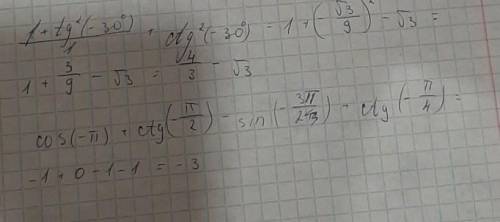 1 + tg²(-30°)/1 + ctg²(-30°) = 1 + (-√3/9)² - √3 =
1 + 3/9 - √3 = 4/3 - √3
cos(-π) + ctg(-π/2) - sin(-3π/2) - ctg(-π/4) =
-1 + 0 - 1 - 1 = -3